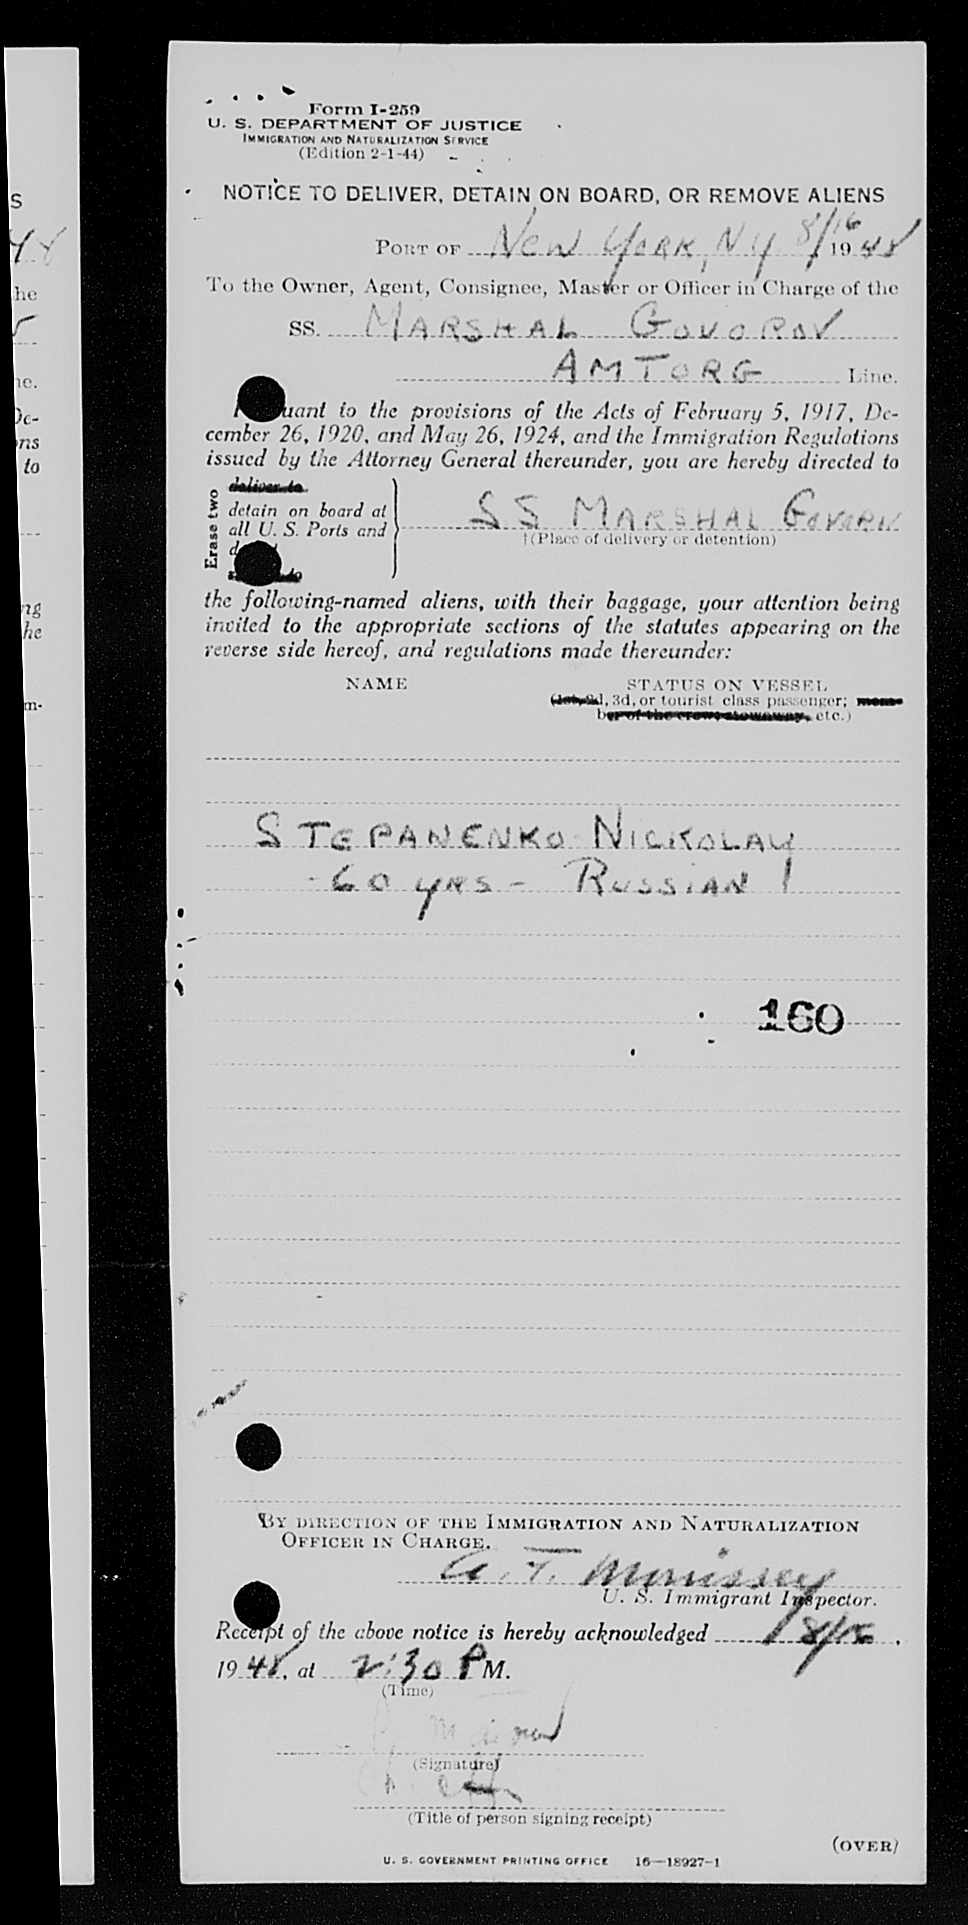 Form I-259
U. S. DEPARTMENT OF JUSTICE
IMMIGRATION AND NATURALIZATION SERVICE
(Edition 2-1-44)
NOTICE TO DELIVER, DETAIN ON BOARD, OR REMOVE ALIENS
PORT OF NEW YORK, NY 8/16 1948
To the Owner, Agent, Consignee, Master or Officer in Charge of the
SS. MARSHAL GOVOROV
AMTORG Line.
uant to the provisions of the Acts of February 5, 1917, De-
cember 26, 1920, and May 26, 1924, and the Immigration Regulations
issued by the Attorney General thereunder, you are hereby directed to
Erase two
deliver to
detain on board at
all U. S. Ports and
SS MARSHAL GOVOROV
†(Place of delivery or detention)
the following-named aliens, with their baggage, your attention being
invited to the appropriate sections of the statutes appearing on the
reverse side hereof, and regulations made thereunder:
NAME STATUS ON VESSEL
(1st, 2d, 3d, or tourist class passenger; mem-
ber of the crew, stowaway, etc.)
STEPANENKO NICKOLAY
- 60 YRS - RUSSIAN 1
160
BY DIRECTION OF THE IMMIGRATION AND NATURALIZATION
OFFICER IN CHARGE.
A. T. Morrissey
U. S. Immigrant Inspector.
Receipt of the above notice is hereby acknowledged 8/16,
1948, at 2:30 P M.
(Time)
(Signature)
(Title of person signing receipt)
(OVER)
U. S. GOVERNMENT PRINTING OFFICE 16—18927-1